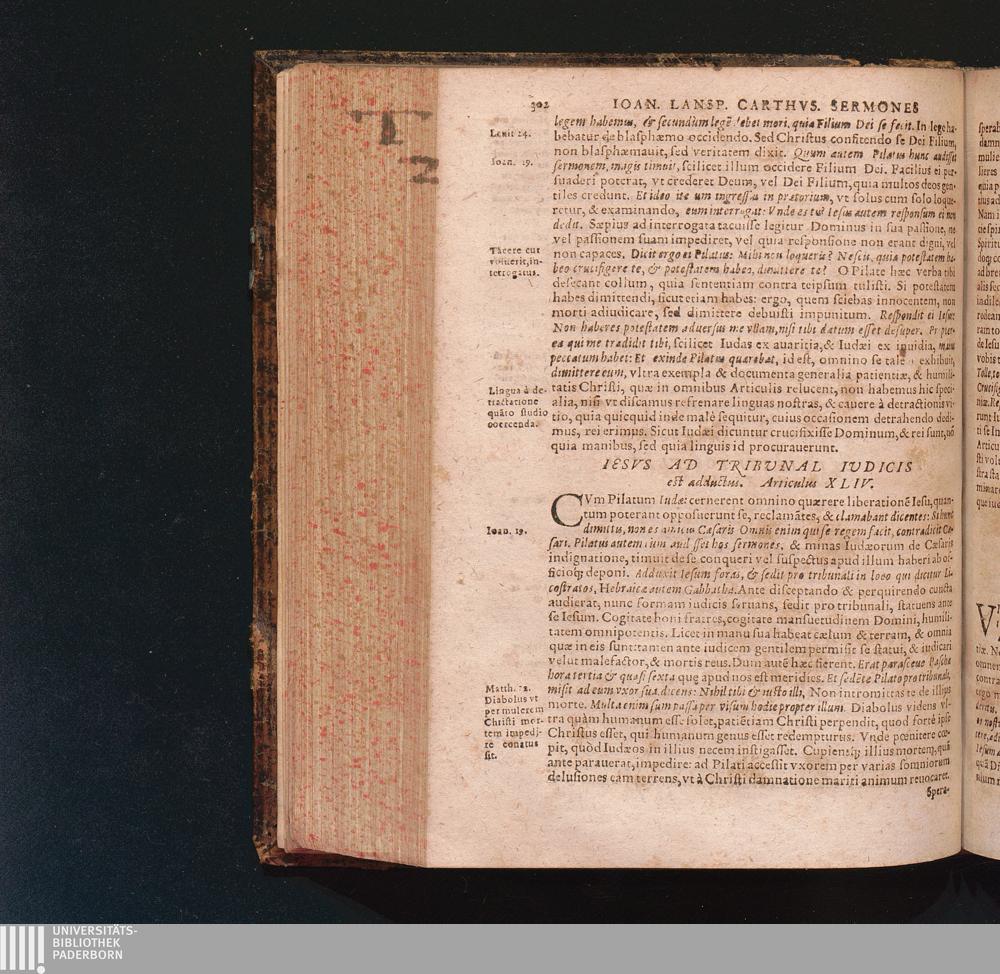 302 IOAN. LANSP. CARTHVS. SERMONES
legem habemus, & secundùm legē debet mori, quia Filium Dei se fecit. In lege ha-
Leuit 24.
bebatur de blasphæmo occidendo. Sed Christus confitendo se Dei Filium,
non blasphæmauit, sed veritatem dixit. Quum autem Pilatus hunc audisset
Ioan. 19.
sermonem, magis timuit, scilicet illum occidere Filium Dei. Facilius ei per-
suaderi poterat, vt crederet Deum, vel Dei Filium, quia multos deos gen-
tiles credunt. Et ideo ite um ingressus in pratorium, vt solus cum solo loque-
retur, & examinando, eum interrogat: Vnde es tu? Iesus autem responsum ei non
dedit. Sæpius ad interrogata tacuisse legitur Dominus in sua passione, ne
vel passionem suam impediret, vel quia responsione non erant digni, vel
Tacere cur
voluerit, in-
terrogatus.
non capaces. Dicit ergo ei Pilatus: Mihi non loqueris? Nescis, quia potestatem ha-
beo crucifigere te, & potestatem habeo, dimittere te? O Pilate hæc verba tibi
desecant collum, quia sententiam contra teipsum tulisti. Si potestatem
habes dimittendi, sicut etiam habes: ergo, quem sciebas innocentem, non
morti adiudicare, sed dimittere debuisti impunitum. Respondit ei Iesus:
Non haberes potestatem aduersus me vllam, nisi tibi datum esset desuper. Propter-
ea qui me tradidit tibi, scilicet Iudas ex auaritia, & Iudæi ex inuidia, maius
peccatum habet: Et exinde Pilatus quærebat, id est, omnino se tale exhibuit,
dimittere eum, vltra exempla & documenta generalia patientiæ, & humili-
Lingua à de-
tractatione
quāto studio
coercenda.
tatis Christi, quæ in omnibus Articulis relucent, non habemus hic speci-
alia, nisi vt discamus refrenare linguas nostras, & cauere à detractionis vi-
tio, quia quicquid inde malè sequitur, cuius occasionem detrahendo dedi-
mus, rei erimus. Sicut Iudæi dicuntur crucifixisse Dominum, & rei sunt, nō
quia manibus, sed quia linguis id procurauerunt.
IESVS AD TRIBVNAL IVDICIS
est adductus. Articulus XLIV.
CVm Pilatum Iudæi cernerent omnino quærere liberationē Iesu, quan-
tum poterant opposuerunt se, reclamātes, & clamabant dicentes: Si hunc
Ioan. 19.
dimittis, non es amicus Cæsaris. Omnis enim qui se regem facit, contradicit Cæ-
sari. Pilatus autem cum audisset hos sermones, & minas Iudæorum de Cæsaris
indignatione, timuit de se conqueri vel suspectus apud illum haberi ab of-
ficioq; deponi. Adduxit Iesum foras, & sedit pro tribunali in loco qui dicitur Li-
costratos, Hebraicè autem Gabbatha. Ante disceptando & perquirendo cuncta
audierat, nunc formam iudicis seruans, sedit pro tribunali, statuens ante
se Iesum. Cogitate boni fratres, cogitate mansuetudinem Domini, humili-
tatem omnipotentis. Licet in manu sua habeat cælum & terram, & omnia
quæ in eis sunt: tamen ante iudicem gentilem permisit se statui, & iudicari
velut malefactor, & mortis reus. Dum autē hæc fierent. Erat parasceue Paschæ
hora tertia & quasi sexta quę apud nos est meridies. Et sedēte Pilato pro tribunali,
Matth. 27.
Diabolus vt
per mulierem
Christi mor-
tem impedi-
re conatus
sit.
misit ad eum vxor sua dicens: Nihil tibi & iusto illi, Non intromittas te de illius
morte. Multa enim sum passa per visum hodie propter illum. Diabolus videns vl-
tra quàm humanum esse solet, patiētiam Christi perpendit, quod fortè ipse
Christus esset, qui humanum genus esset redempturus. Vnde pœnitere cœ-
pit, quòd Iudæos in illius necem instigasset. Cupiensq; illius mortem, quā
ante parauerat, impedire: ad Pilati accessit vxorem per varias somniorum
delusiones eam terrens, vt à Christi damnatione mariti animum reuocaret.
Spera-
T
2
UNIVERSITÄTS-
BIBLIOTHEK
PADERBORN